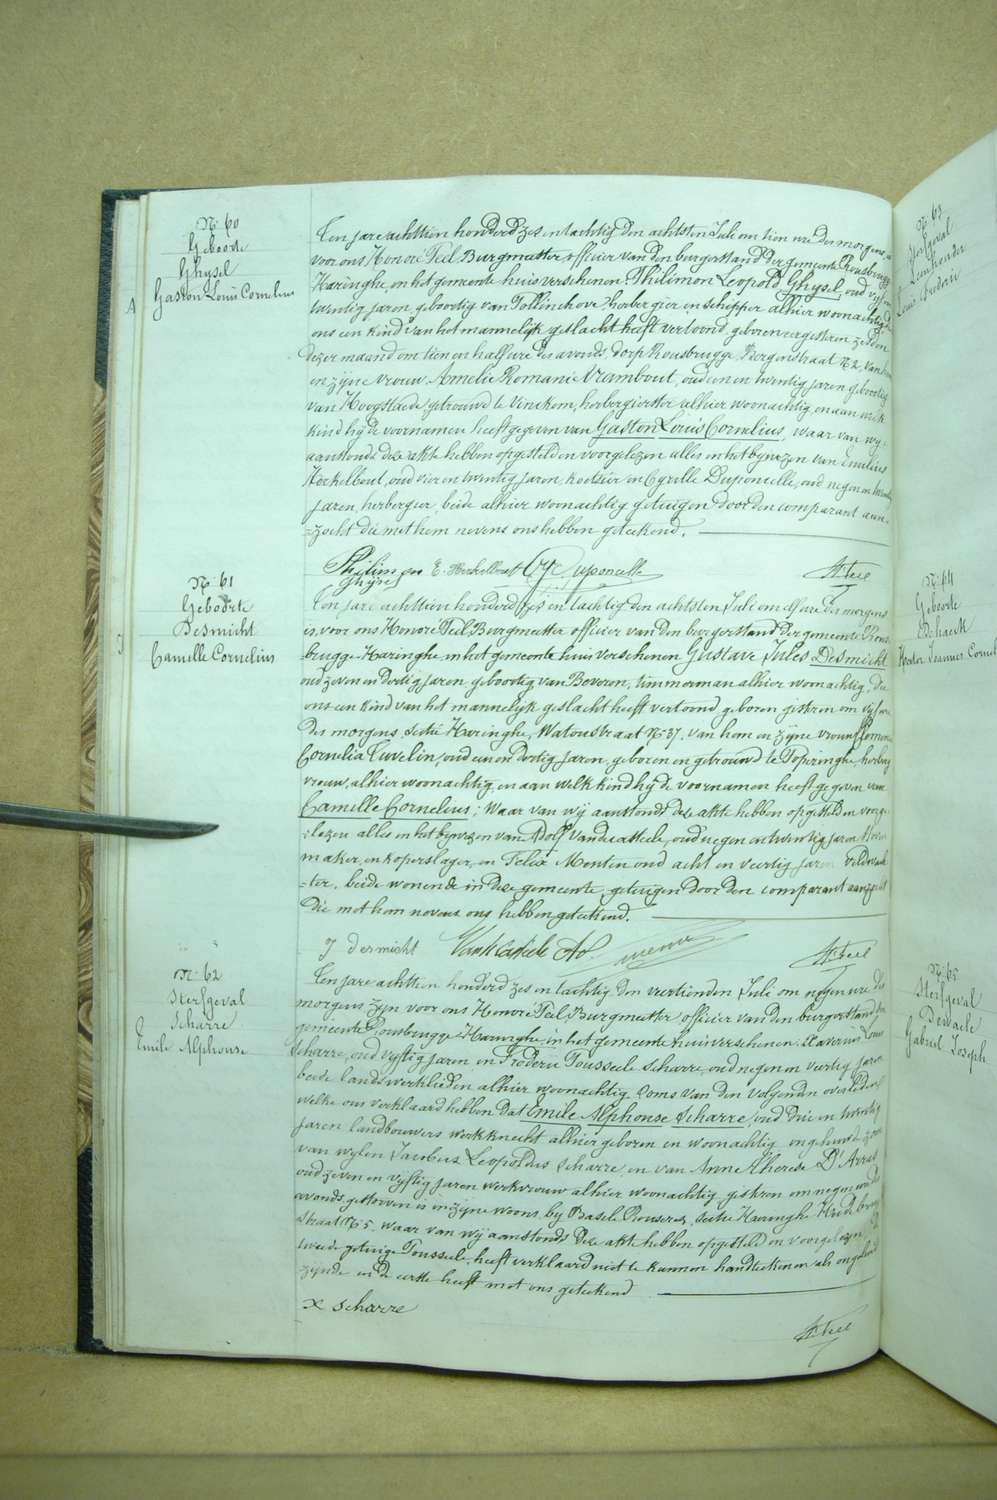 N° 60
Geboorte
Ghysel
Gaston Louis Cornelius
Ten jare achttien honderd zes en tachtig den achtsten Juli om tien ure des morgens, is
voor ons Honoré Feel Burgmeester officier van den burgerstand der gemeente Rousbrugge
Haringhe, en het gemeente huis verschenen Philimon Leopold Ghysel, oud vyf en
twintig jaren, geboortig van Pollinchove, herbergier en schipper alhier woonachtig, die
ons een kind van het mannelyk geslacht heeft vertoond, geboren eergisteren zesden
dezer maand om tien en half ure des avonds, dorp Rousbrugge Bergenstraat N° 2, van hem
en zyne vrouw Amelie Romanie Vrambout, oud een en twintig jaren geboortig
van Hoogstaede, getrouwd te Vinckem, herbergierster alhier woonachtig, en aan welk
kind hy de voornamen heeft gegeven van Gaston Louis Cornelius, waar van wy
aanstonds deze akte hebben opgesteld en voorgelezen alles in het bywezen van Emilius
Herkelbout, oud vier en twintig jaren, koetsier en Cyrille Duponselle, oud negen en twintig
jaren, herbergier, beide alhier woonachtig getuigen door den comparant aan-
=zocht die met hem nevens ons hebben geteekend.
Philimon E. Herkelbout Cyr. Duponselle H. Feel
Ghysel
N° 61
Geboorte
Desmicht
Camille Cornelius
Ten jare achttien honderd zes en tachtig den achtsten Juli om elf ure des morgens
is voor ons Honoré Feel Burgmeester officier van den burgerstand der gemeente Rous-
brugge-Haringhe, in het gemeente huis verschenen Gustave Jules Desmicht
oud zeven en dertig jaren, geboortig van Beveren, timmerman alhier woonachtig, die
ons een kind van het mannelyk geslacht heeft vertoond geboren gisteren om vyf ure
des morgens, sectie Haringhe, Watoustraat N° 37, van hem en zyne vrouw Filomena
Cornelia Tuvelin, oud een en dertig jaren, geboren en getrouwd te Poperinghe, herberg-
vrouw, alhier woonachtig, en aan welk kind hy de voornamen heeft gegeven van
Camille Cornelius; Waar van wy aanstonds deze akte hebben opgesteld en voorge-
=lezen alles in het bywezen van Adolf Vandecasteele, oud negen en twintig jaren
maker, en koperslager, en Felix Menten oud acht en veertig jaren veldwach-
=ter, beide wonende in deze gemeente, getuigen door den comparant aangezocht
die met hem nevens ons hebben geteekend.
J Desmicht H. Feel
N° 62
Sterfgeval
Scharre
Emile Alphonse
Ten jare achttien honderd zes en tachtig den veertienden Juli om negen ure des
morgens zyn voor ons Honoré Feel Burgmeester officier van den burgerstand der
gemeente Rousbrugge Haringhe, in het gemeente huis verschenen Xaverius Louis
Scharre, oud vyftig jaren en Frederic Toussecle Scharre, oud negen en veertig jaren
beide landswerklieden alhier woonachtig, ooms van den volgenden overledene
welke ons verklaard hebben dat Emile Alphonse Scharre, oud drie en twintig
jaren landbouwers werkknecht alhier geboren en woonachtig, ongehuwd zoon
van wylen Jacobus Leopoldus Scharre, en van Anne Therese D'Arras
oud zeven en vyftig jaren werkvrouw alhier woonachtig, gisteren om negen ure des
avonds gestorven is in zyne woons, by Basele Rouseree, sectie Haringhe
straat N° 5, waar van wy aanstonds deze akte hebben opgesteld en voorgelezen. De
tweede getuige Toussecle, heeft verklaard niet te kunnen handteekenen als ongeleerd
zynde en de eerste heeft met ons geteekend
X Scharre
H. Feel
N° 63
Sterfgeval
N° 64
Geboorte
Hector Joannes Cornel
N° 65
Sterfgeval
Dewaele
Gabriel Joseph